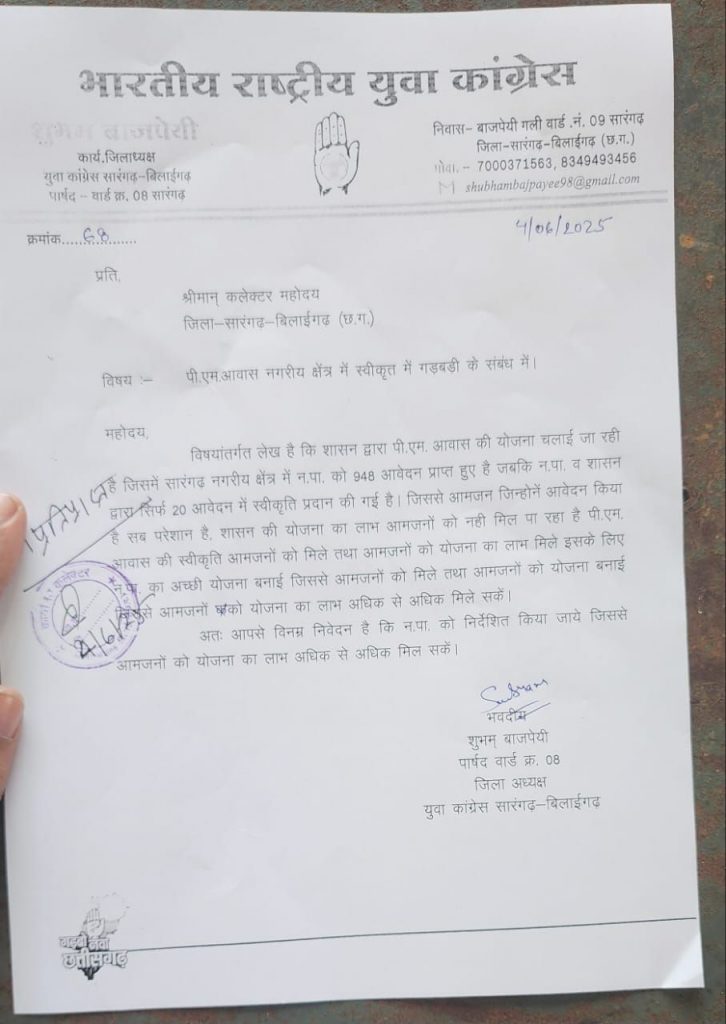 भारतीय राष्ट्रीय युवा कांग्रेस
शुभम बाजपेयी
कार्य.जिलाध्यक्ष
युवा कांग्रेस सारंगढ़–बिलाईगढ़
पार्षद – वार्ड क्र. 08 सारंगढ़
निवास– बाजपेयी गली वार्ड .नं. 09 सारंगढ़
जिला–सारंगढ़–बिलाईगढ़ (छ.ग.)
मोवा. – 7000371563, 8349493456
shubhambajpayee98@gmail.com
क्रमांक.....68.......
4/06/2025
प्रति,
श्रीमान् कलेक्टर महोदय
जिला–सारंगढ़–बिलाईगढ़ (छ.ग.)
विषय :– पी.एम.आवास नगरीय क्षेंत्र में स्वीकृत्त में गड़बडी के संबंध में।
महोदय,
विषयांतर्गत लेख है कि शासन द्वारा पी.एम. आवास की योजना चलाई जा रही
है जिसमें सारंगढ़ नगरीय क्षेंत्र में न.पा. को 948 आवेदन प्राप्त हुए है जबकि न.पा. व शासन
द्वारा सिर्फ 20 आवेदन में स्वीकृति प्रदान की गई है। जिससे आमजन जिन्होनें आवेदन किया
है सब परेशान है, शासन की योजना का लाभ आमजनों को नही मिल पा रहा है पी.एम.
आवास की स्वीकृति आमजनों को मिले तथा आमजनों को योजना का लाभ मिले इसके लिए
पा. का अच्छी योजना बनाई जिससे आमजनों को मिले तथा आमजनों को योजना बनाई
जिससे आमजनों को योजना का लाभ अधिक से अधिक मिले सकें।
अतः आपसे विनम्र निवेदन है कि न.पा. को निर्देशित किया जाये जिससे
आमजनों को योजना का लाभ अधिक से अधिक मिल सकें।
प्रतिप्राप्त
4/6/25
भवदीय
शुभम् बाजपेयी
पार्षद वार्ड क्र. 08
जिला अध्यक्ष
युवा कांग्रेस सारंगढ़–बिलाईगढ़
गढ़बो नवा
छत्तीसगढ़